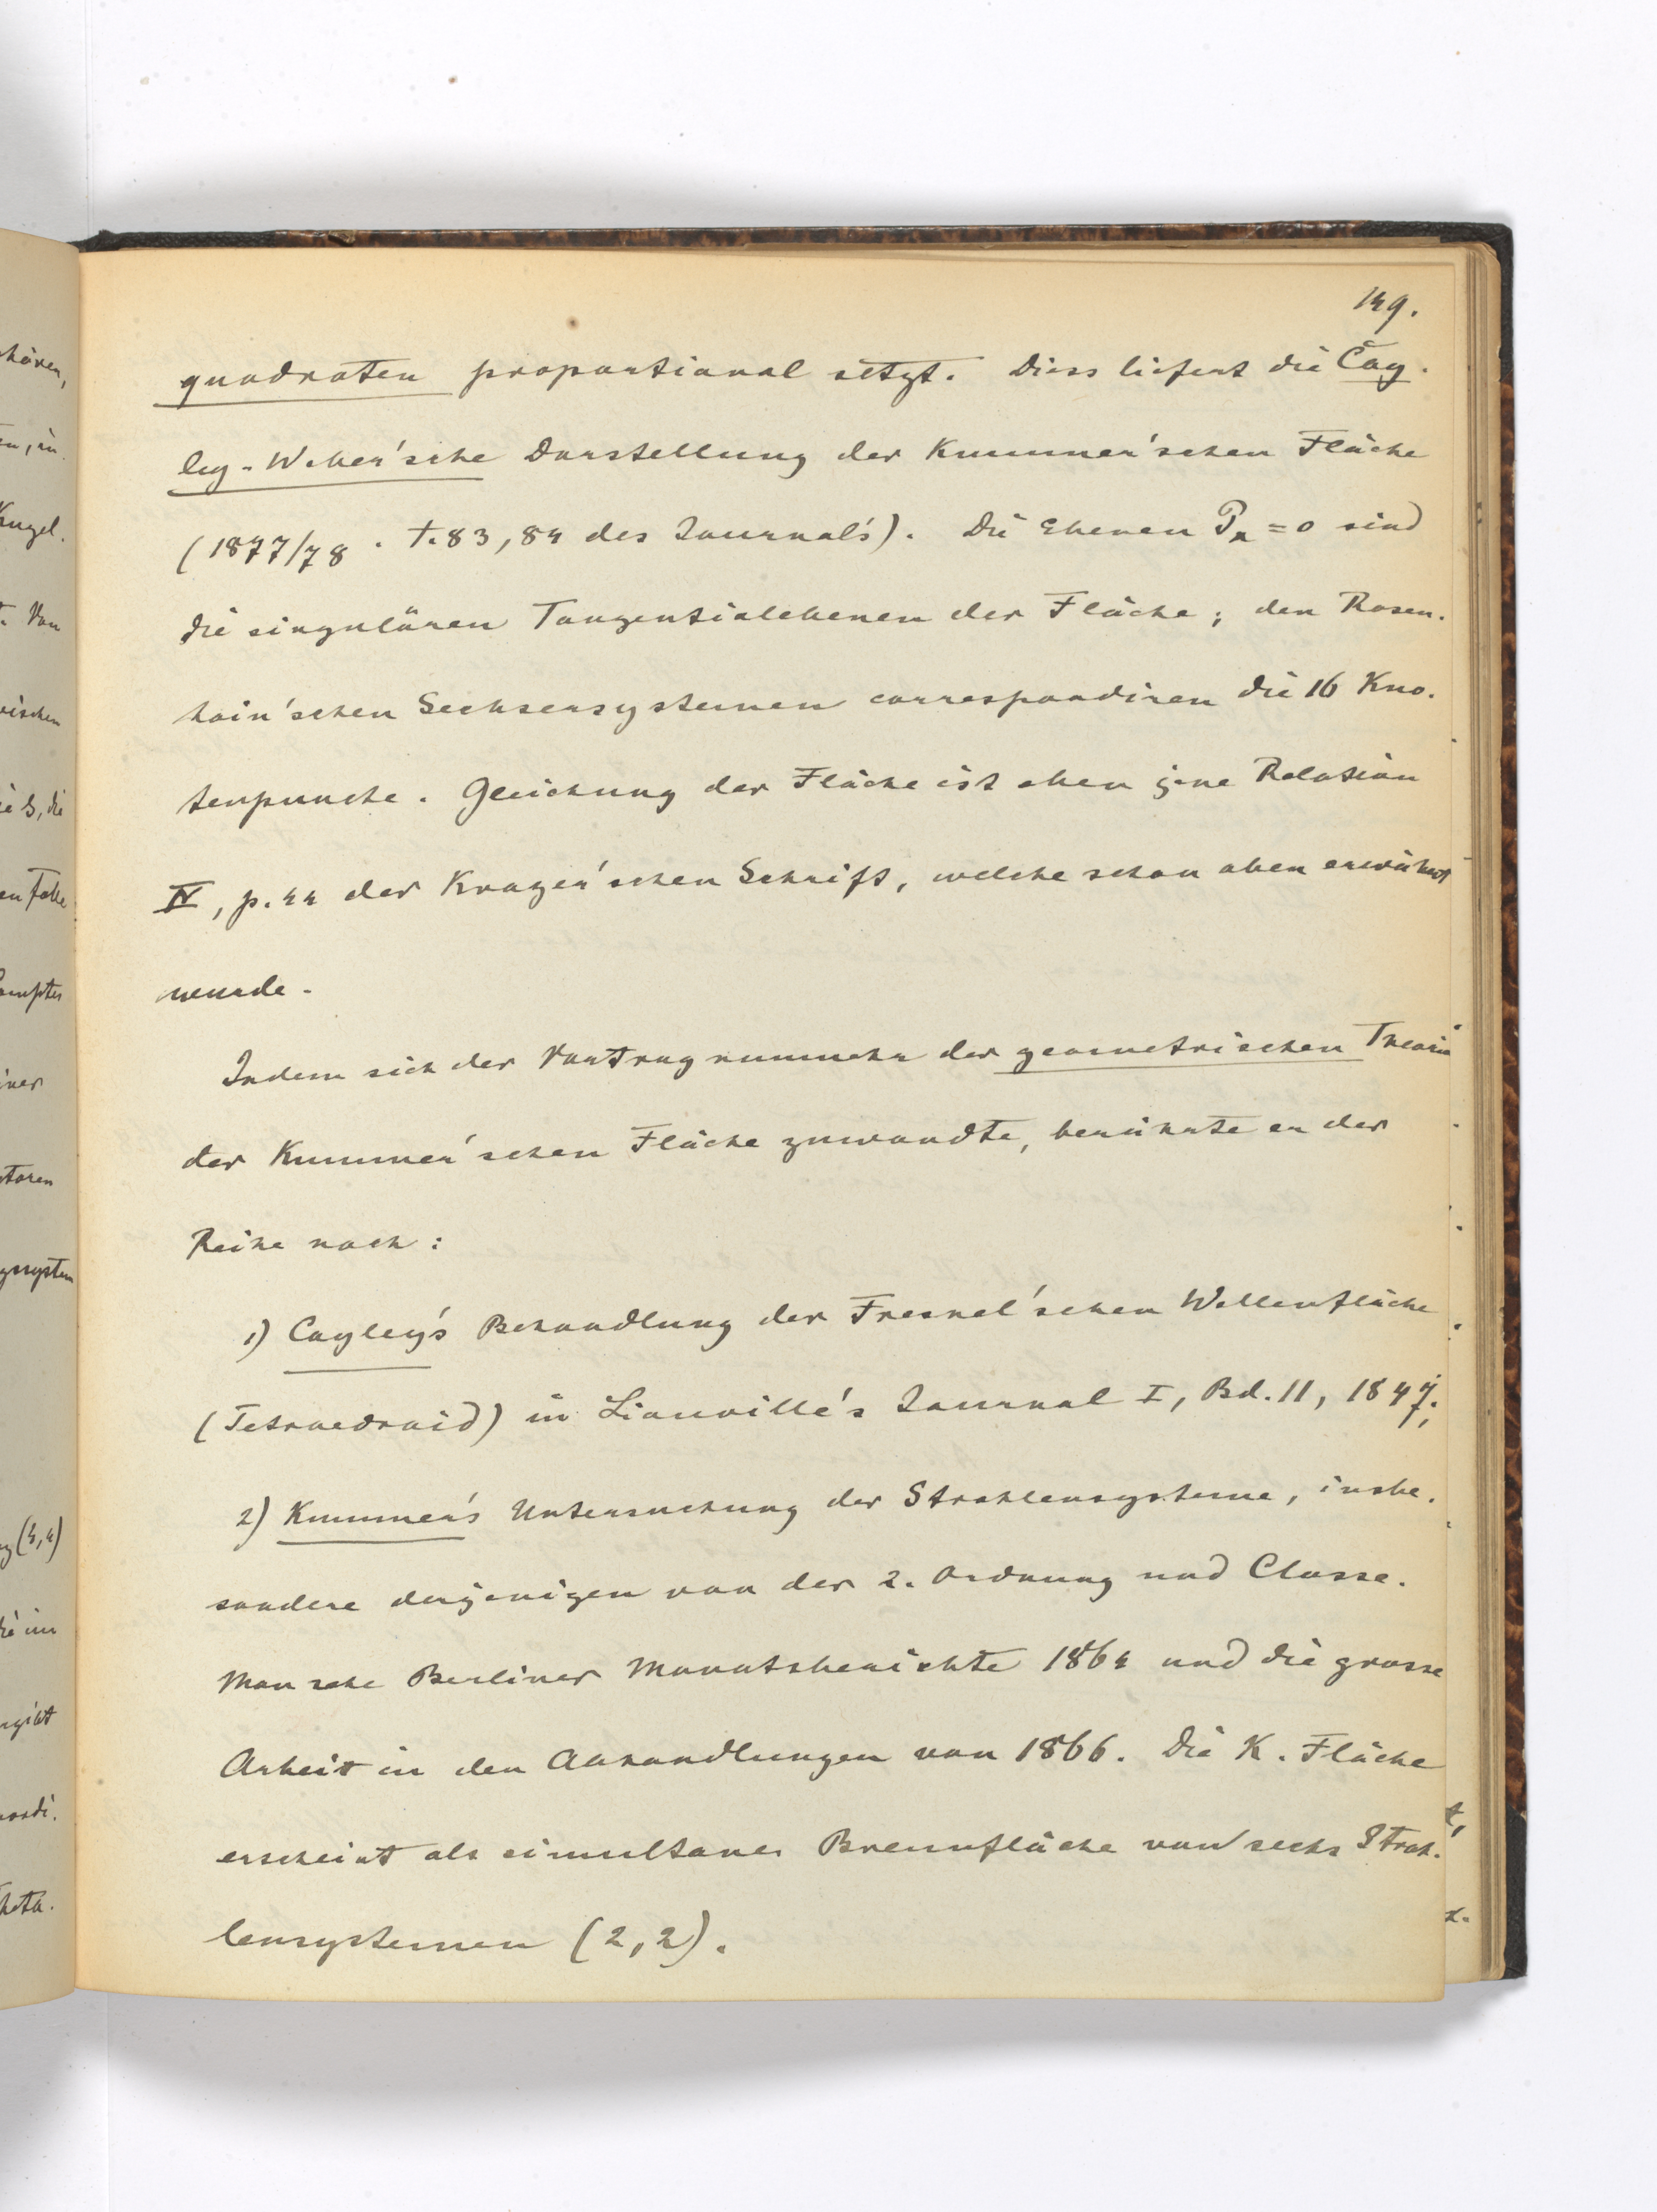 149.
quadraten proportional setzt. Diess liefert die Cay-
ley-Weber'sche Darstellung der Kummer'schen Fläche
(1877/78. T. 83, 84 des Journals). Die Ebenen P = 0 sind
die singulären Tangentialebenen der Fläche; den Rosen-
hain'schen Sechsersystemen correspondiren die 16 Kno-
tenpuncte. Gleichung der Fläche ist eben jene Relation
IV, p. 44 der Krazer'schen Schrift, welche schon oben erwähnt
wurde.
Indem sich der Vortrag nunmehr der geometrischen Theorie
der Kummer'schen Fläche zuwandte, berührte er der
Reihe nach:
1) Cayley's Behandlung der Fresnel'schen Wellenfläche
(Tetraedroid) in Liouville's Journal I, Bd. 11, 1847;
2) Kummer's Untersuchung der Strahlensysteme, insbe-
sondere derjenigen von der 2. Ordnung und Classe.
Man sehe Berliner Monatsberichte 1864 und die grosse
Arbeit in den Abhandlungen von 1866. Die K. Fläche
erscheint als simultane Brennfläche von sechs Strah-
lensystemen (2,2).